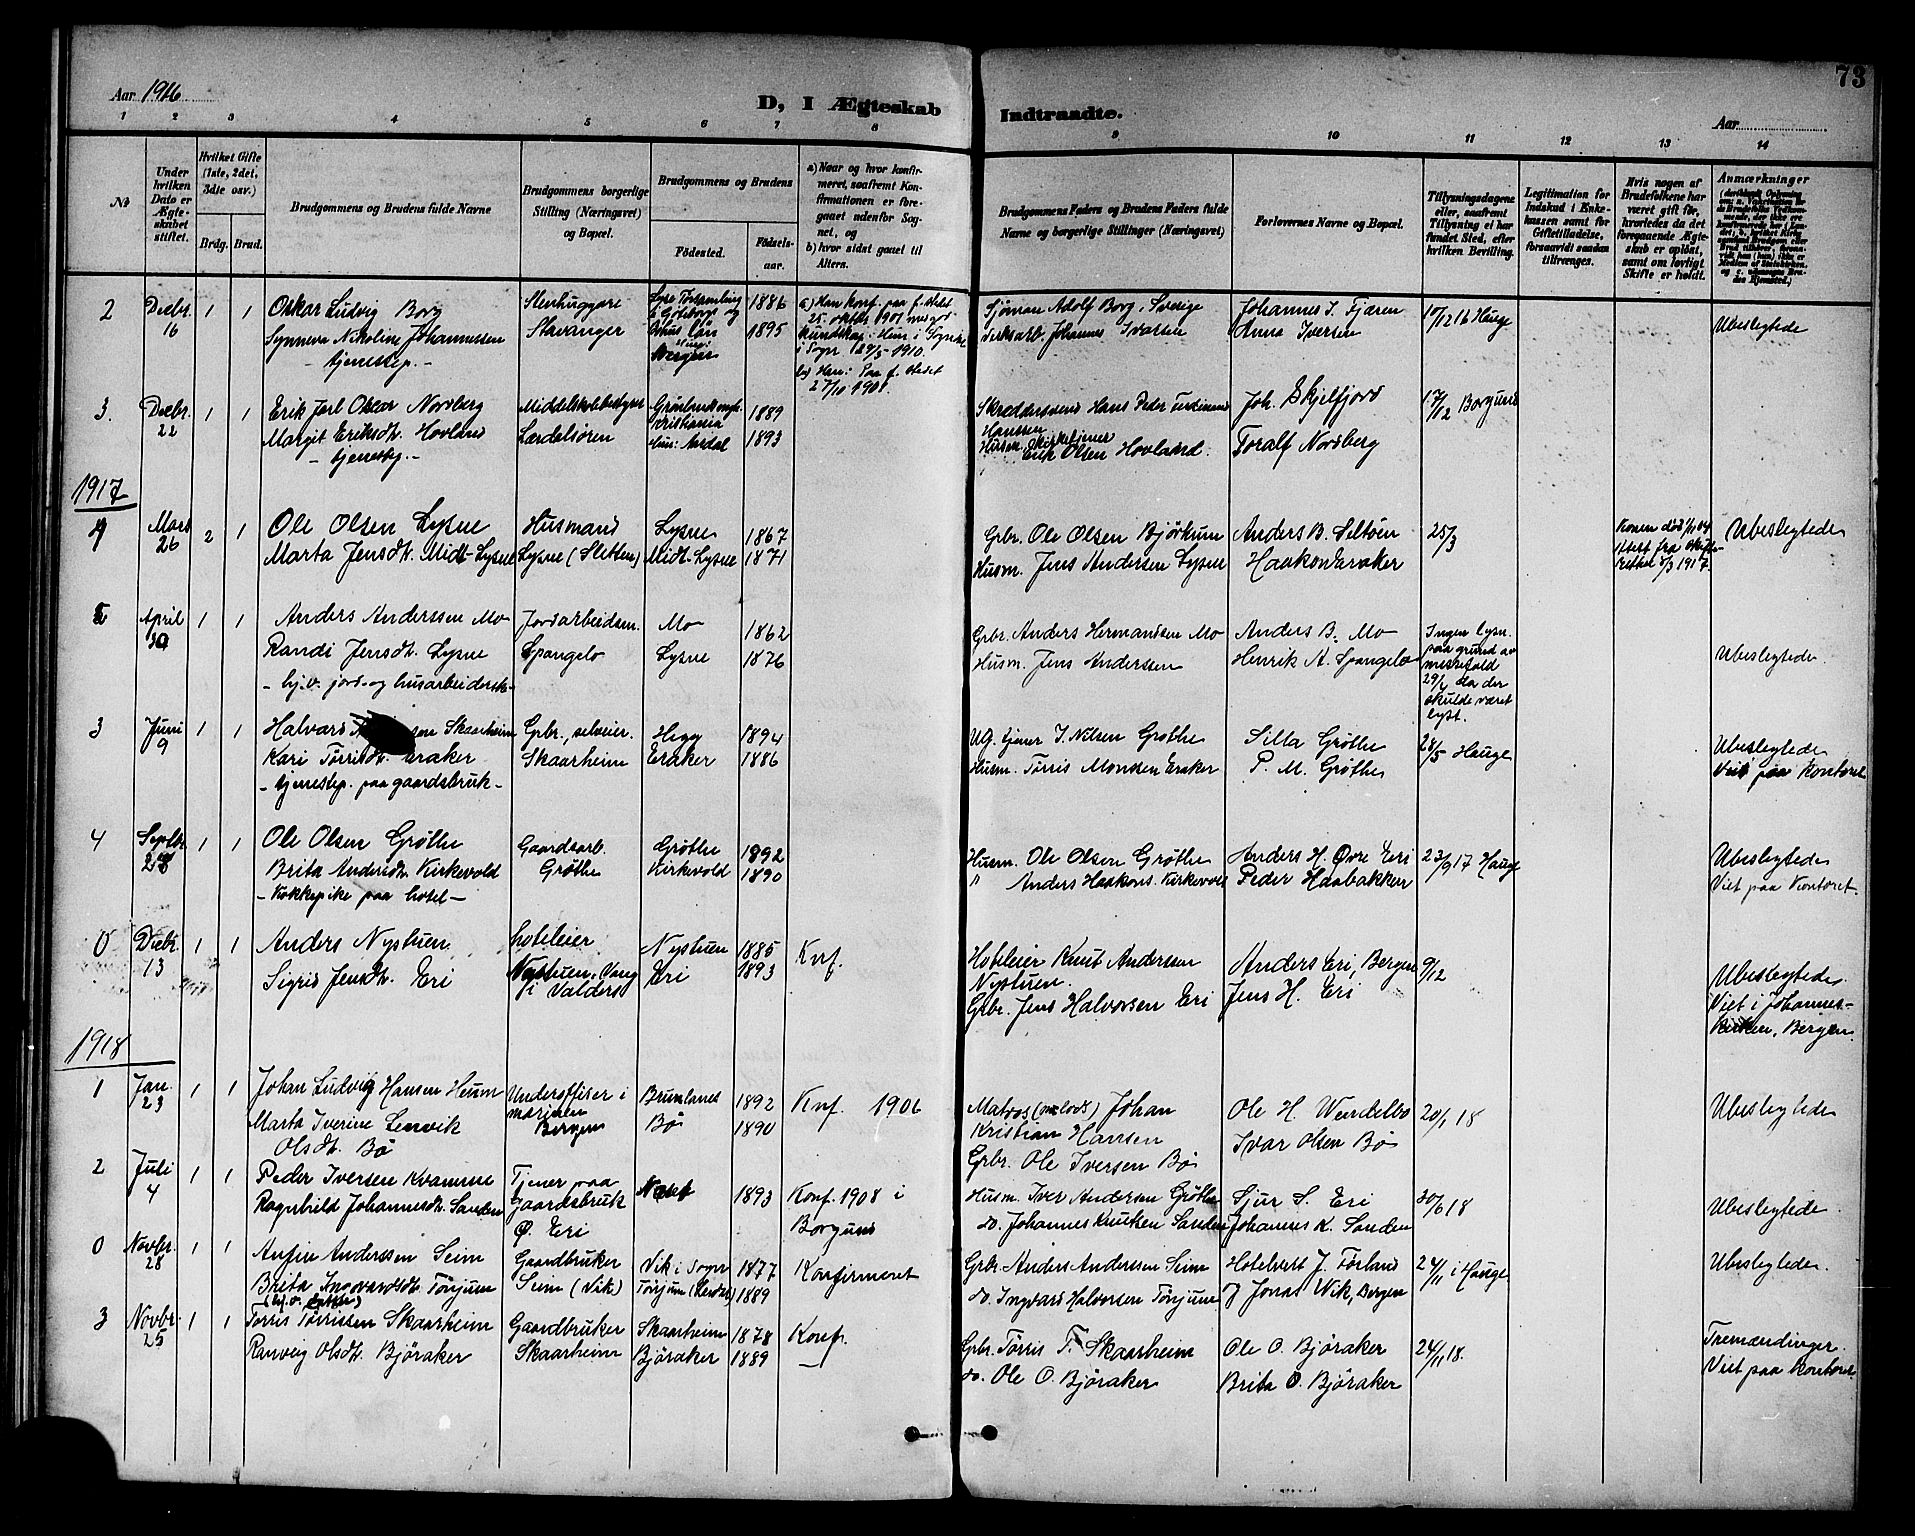 Aar 1916
D, I Ægteskab Indtraadte.
Aar
73
1 2 3 4 5 6 7 8 9 10 11 12 13 14
No
Under hvilken Dato er Ægteskabet stiftet.
Hvilket Gifte (1ste, 2det, 3die osv.)
Brdg. Brud.
Brudgommens og Brudens fulde Navne
Brudgommens borgerlige Stilling (Næringsvei) og Bopæl.
Brudgommens og Brudens
Fødested.
Fødselsaar.
a) Naar og hvor konfirmeret, saafremt Konfirmationen er foregaaet udenfor Sognet, og
b) hvor sidst gaaet til Alters.
Brudgommens Faders og Brudens Faders fulde Navne og borgerlige Stillinger (Næringsvei)
Forlovernes Navne og Bopæl.
Tillysningsdagene eller, saafremt Tillysning ei har fundet Sted, efter hvilken Bevilling.
Legitimation for Indskud i Enkekassen samt for Giftetilladelse, forsaavidt saadan tiltrænges.
Hvis nogen af Brudefolkene har været gift før, hvorledes da det foregaaende Ægteskab er opløst, samt om lovligt Skifte er holdt.
Anmærkninger
2 Decbr. 16 1 1 Oskar Ludvig Borg
Synneva Nikoline Johannessen
- tjenestep. -
Stenhuggare
Stavanger
1886
1895
a) Han konf. paa f. stedet
25. oktbr 1901
Kundskap: Hun i Sogndal
i Sogn 29/5 1910.
b) Han: Paa f. stedet
27/10 1901
Sjøman Adolf Borg, Sverige
Johannes Ivarsen
Johannes I. Fjæren
Anna Iversen
10/12 16 Hauge
Ubeslegtede
3. Decbr. 22 1 1 Erik Jarl Oskar Nordberg
Margit Eriksdtr. Hovland
- tjenestep. -
Middelskolebestyrer
Lærdalsøren
Kristiania
Hun: Aardal
1889
1893
Skræddersvend Hans Peder Ferdinand
Hanssen
Kirketjener
Erik Olsen Hovland.
Joh. Skjelfjord
Toralf Nordberg
17/12 Borgund
1917
1 Mars 26 2 1 Ole Olsen Lysne
Marta Jensdtr. Midt-Lysne
Husmand
Lysne (Sletten)
Lysne
Midt-Lysne
1867
1871
Grbr. Ole Olsen Bjørkum
Husm. Jens Andersen Lysne
Anders B. Seltøen
Haakon Eraker
25/3
Konen død 1/1 04
Attest fra skifteretten 5/3 1917.
Ubeslegtede
2 April 30 1 1 Anders Anderssen Mo
Randi Jensdtr. Lysne
- hj.v. jord- og husarbeidersk -
Jordarbeidsm.
Spangelo
Mo
Lysne
1862
1876
Grbr. Anders Hermandsen Mo
Husm. Jens Anderssen
Anders B. Mo
Henrik A. Spangelo
Ingen lysn. paa grund av messefald 29/4 da der skulde været lyst.
Ubeslegtede.
3 Juni 9 1 1 Halvard Skaarheim
Kari Tørrisdtr. Eraker
- tjenestep. paa gaardsbruk -
Grbr., selveier.
Skaarheim
Hegg
Eraker
1894
1886
Ug. tjener I. Nilsen Grøthe
Husm. Tørris Monsen Eraker
Silla Grøthe
P. M. Grøthe
28/5 Hauge
Ubeslegtede
Viet paa Kontoret
4 Septbr. 28 1 1 Ole Olsen Grøthe
Brita Andersdtr. Kirkevold
- Kokkepike paa hotel -
Gaardsarb.
Grøthe
Grøthe
Kirkevold
1892
1890
Husm. Ole Olsen Grøthe
" Anders Haakons. Kirkevold
Anders H. Øvre Eri
Peder Haabakken
23/9 17 Hauge
Ubeslegtede
Viet paa Kontoret.
0 Decbr. 13 1 1 Anders Nystuen
Sigrid Jensdtr. Eri
hoteleier
Nystuen, Vang i Valders
Nystuen
Eri
1885
1893
Knf.
Hoteleier Knut Anderssen
Nystuen.
Grbr. Jens Halvorsen Eri
Anders Eri, Bergen
Jens H. Eri
9/12
Ubeslegtede
Viet i Johannes-
kirken, Bergen.
1918
1 Jan. 23 1 1 Johan Ludvig Hansen Heum
Marta Iverine Lervik
Olsdtr. Bø
Underoffiser i
marinen
Bergen
Brunlanes
Bø
1892
1890
Knf. 1906
Matros (onlods) Johan
Kristian Hansen
Grbr. Ole Iversen Bø
Ole H. Wendelbo
Ivar Olsen Bø
20/1 18
Ubeslegtede
2 Juli 4 1 1 Peder Iversen Kvamme
Ragnhild Johannesdtr. Sanden
Tjener paa
Gaardsbruk
Ø. Eri
1893
Konf. 1908 i
Borgund
Husm. Iver Andersen Grøthe
do. Johannes Knutsen Sanden
Sjur S. Eri
Johannes K. Sanden
30/6 18
Ubeslegtede.
0 Novbr. 28 1 1 Anfin Anderssen Seim
Brita Ingvardsdtr. Tønjum
Gaardbruker
Seim (Vik)
Vik i Sogn
Tønjum (Lærdal)
1877
1889
Konfirmeret
Grbr. Anders Anderssen Seim
do. Ingvard Halvorsen Tønjum
Hotelvert J. Førland
J. Jonas Wik, Bergen
24/11 i Hauge
Ubeslegtede.
3 Novbr. 25 1 1 Tørris Tørrissen Skaarheim
Ranveig Olsdtr. Bjøraker
Gaardbruker
Skaarheim
Skaarheim
Bjøraker
1878
1889
Konf.
—
Grbr. Tørris T. Skaarheim
do. Ole O. Bjøraker
Ole O. Bjøraker
Brita O. Bjøraker
24/11 18.
Tremændinger.
Viet paa Kontoret.